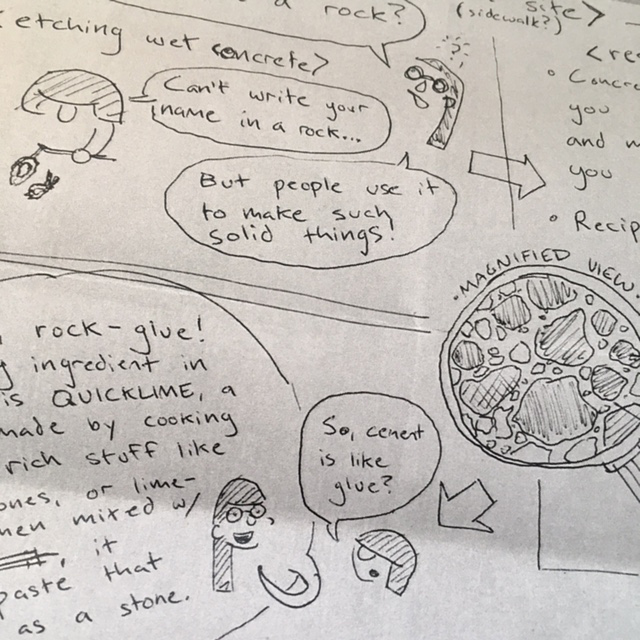 a rock?
etching wet concrete>
Can't write your
name in a rock...
But people use it
to make such
solid things!
site>
(sidewalk?)
<re
• Concre
you
and m
you
• Recip
• MAGNIFIED VIEW •
rock-glue!
ingredient in
is QUICKLIME, a
made by cooking
rich stuff like
ones, or lime-
hen mixed w/
it
paste that
as a stone.
So, cement
is like
glue?
?